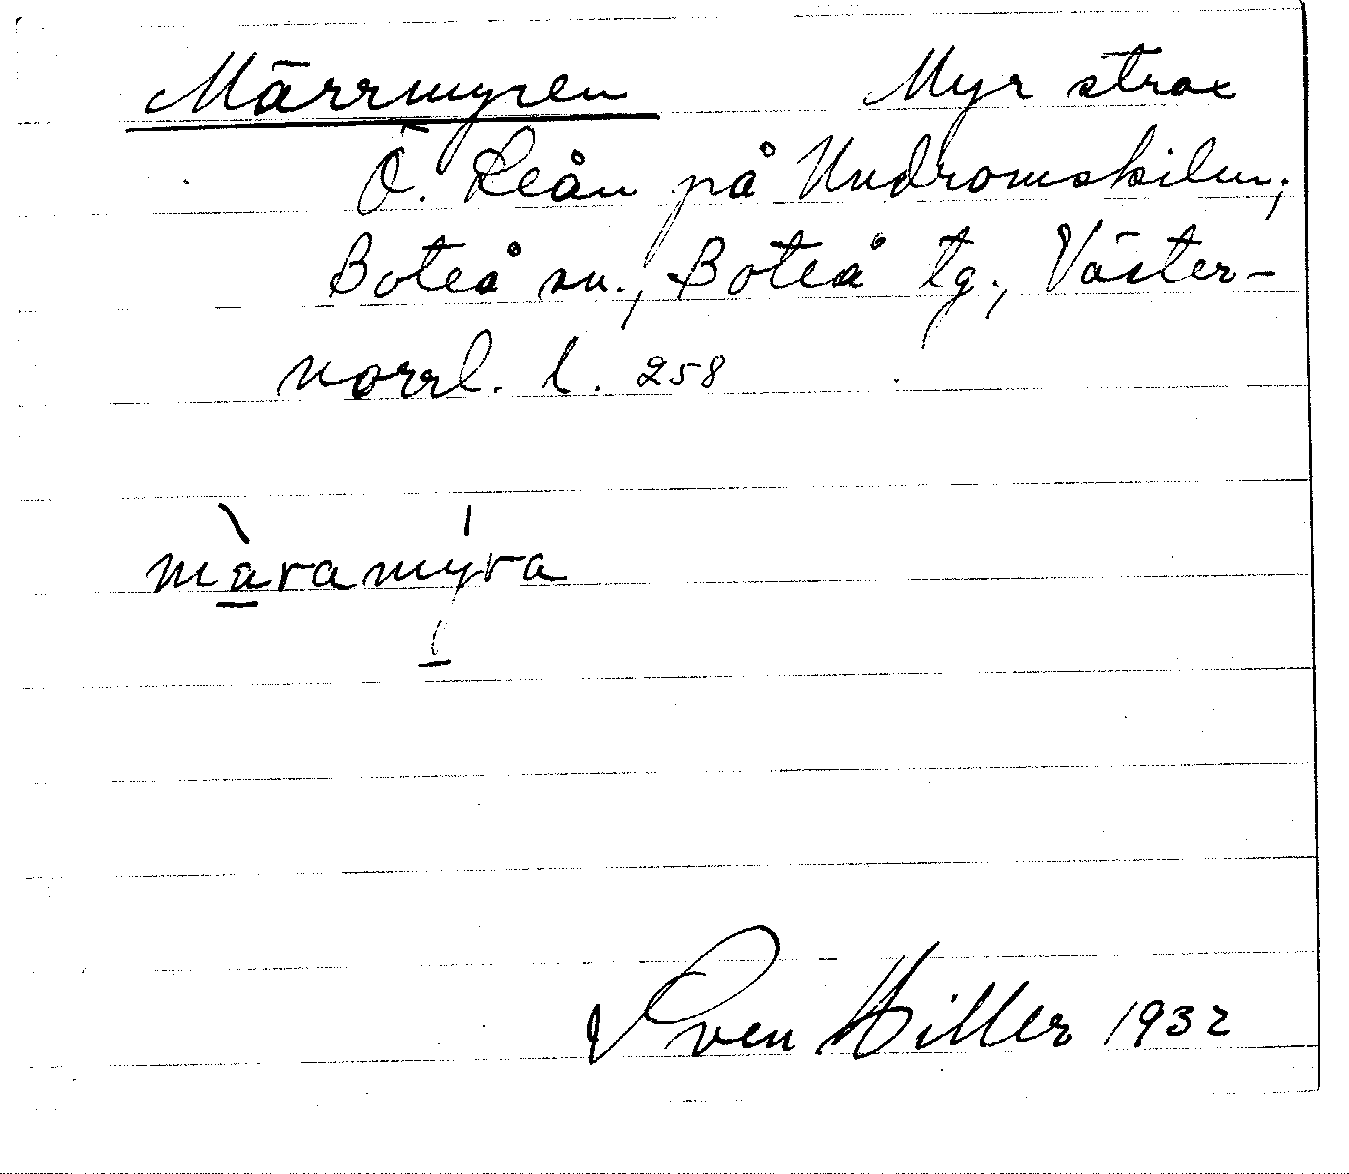 Märrmyren Myr strax
Ö. Leån på Undromskilen,
Boteå sn., Boteå tg., Väster-
norrl. l. 258
màramýra
Sven Hiller 1932